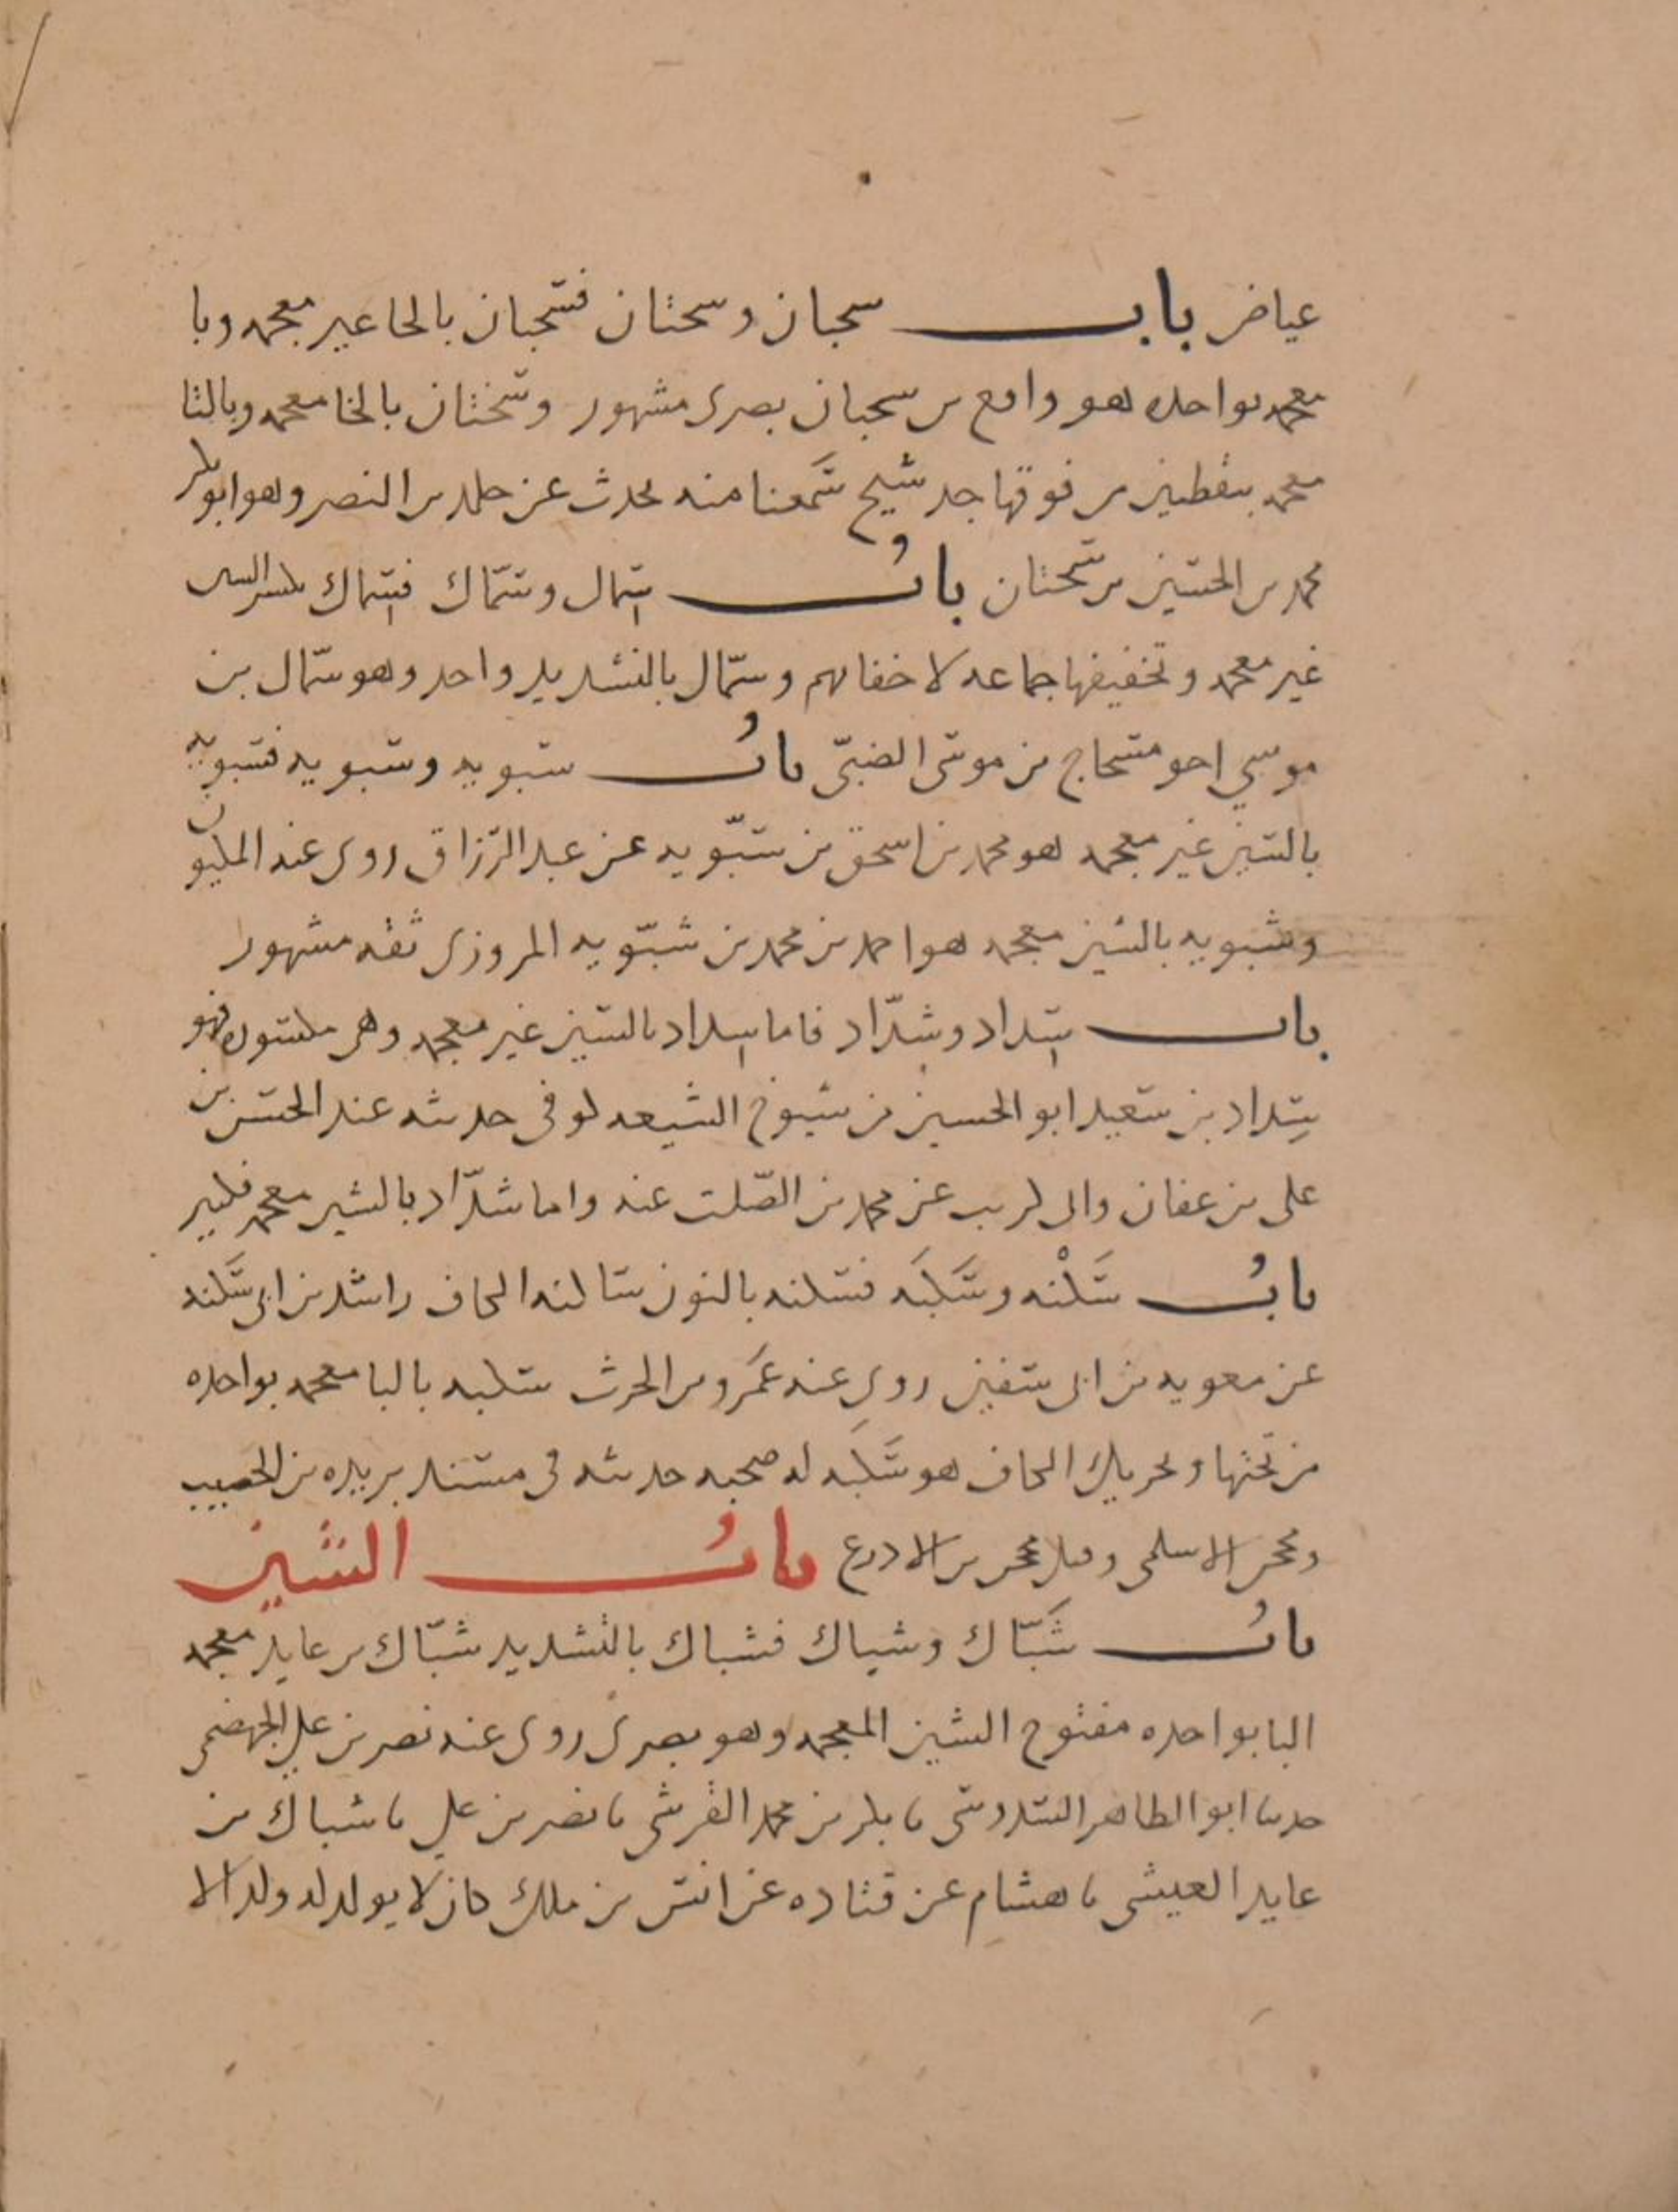 عياض باب سحبان وسختان فسحبان بالحا غير معجمه وبا
معجمه بواحده هو واقع بن سحبان بصرى مشهور وسختان بالخا معجمه وبالتا
معجمه بنقطتين من فوقها جد شيخ سمعنا منه يحدث عن النضر وهو ابو بكر
محمد بن الحسين بن سختان باب سمال وسماك فسماك بكسر السين
غير معجمه وتخفيفها جماعه لا خفا بهم وسمّال بالتشديد واحد وهو سمّال بن
موسى اخو مسحاج بن موسى الضبّى باب سبويه وشبويه فسبويه
بالسين غير معجمه هو محمد بن اسحق بن سبّويه عن عبد الرزاق روى عنه المكيون
وشبويه بالشين معجمه هو احمد بن محمد بن شبّويه المروزى ثقه مشهور
باب سداد وشدّاد فاما سداد بالسين غير معجمه وهى مكسوره فهو
سِداد بن سعيد ابو الحسين من شيوخ الشيعه كوفى حديثه عند الحسن بن
على بن عفان وابى كريب عن محمد بن الصّلت عنه واما شدّاد بالشين معجمه فكثير
بابُ سَكْنه وسَكَبَه فسكنه بالنون ساكنه الكاف راشد بن ابى سَكنه
عن معويه بن ابى سفين روى عنه عَمرو بن الحرث سكبه بالبا معجمه بواحده
من تحتها وتحريك الكاف هو سَكَبَه له صحبه حديثه فى مسند بريده بن الحصيب
ومحجن الاسلمى وقيل محجن بن الادرع بابُ الشين
بابُ شَبّاك وشباك فشباك بالتشديد شبّاك بن عايد معجمه
البا بواحده مفتوح الشين المعجمه وهو بصرى روى عنه نصر بن على الجهضمى
حدثنا ابو الطاهر السدوسى نا بكر بن محمد القرشى نا نصر بن على نا شباك بن
عايد العيشى نا هشام عن قتاده عن انس بن ملك كان لا يولد له ولد الا